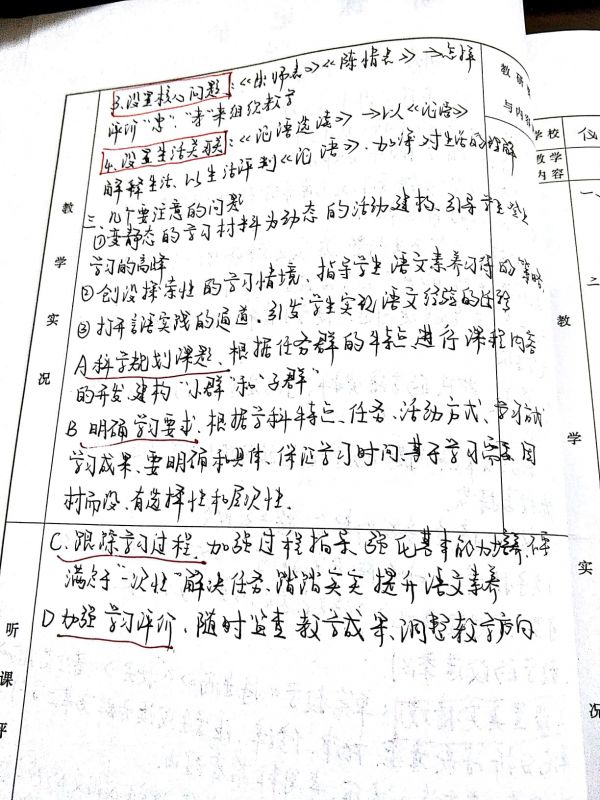 3.设置核心问题:《出师表》《陈情表》→怎样
评价"忠"、"孝"来组织教学
4.设置生活关联:《论语选读》→以《论语》
解释生活、以生活评判《论语》.加深对生活的理解
三、几个要注意的问题
①变静态的学习材料为动态的活动建构、引导学生登上
学习的高峰
②创设探索性的学习情境、指导学生语文素养习得的策略
③打开言语实践的通道、引发学生实现语文经验的
A科学规划课题、根据任务群的特点进行课程内容
的开发、建构"小群"和"子群"
B明确学习要求、根据学科特点、任务、活动方式、学习方式
学习成果、要明确和具体、保证学习时间、基于学习需要因
材而设、有选择性和层次性.
C.跟踪学习过程、加强过程指导、强化基本能力培养、不
满足于"一次性"解决任务、踏踏实实提升语文素养
D加强学习评价、随时监查教学成果、调整教学方向
教学实况
听课评
教研
与内容
学校
教学
内容
一、
二
教学实况